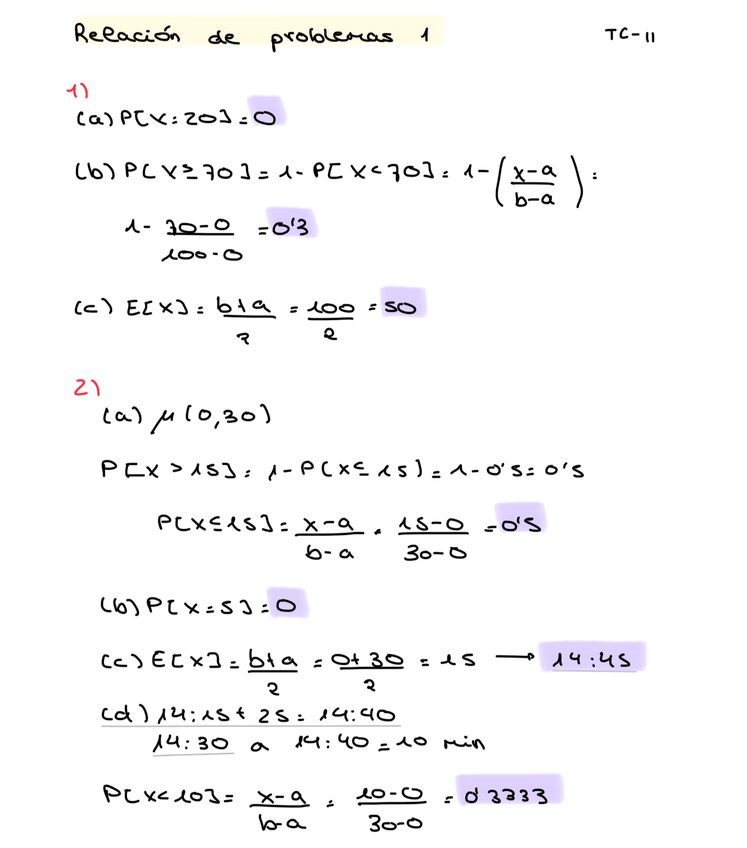 Relación de problemas 1
TC-11
1)
(a) P[X=20] = 0
(b) P[X≥70] = 1 - P[X<70] = 1 - (x-a / b-a) =
1 - 70-0 / 100-0 = 0'3
(c) E[X] = b+a / 2 = 100 / 2 = 50
2)
(a) μ(0,30)
P[X > 15] = 1 - P[X≤15] = 1 - 0'5 = 0'5
P[X≤15] = x-a / b-a = 15-0 / 30-0 = 0'5
(b) P[X=5] = 0
(c) E[X] = b+a / 2 = 0+30 / 2 = 15 → 14:45
(d) 14:15 + 25 = 14:40
14:30 a 14:40 = 10 min
P[X<10] = x-a / b-a = 10-0 / 30-0 = 0'3333